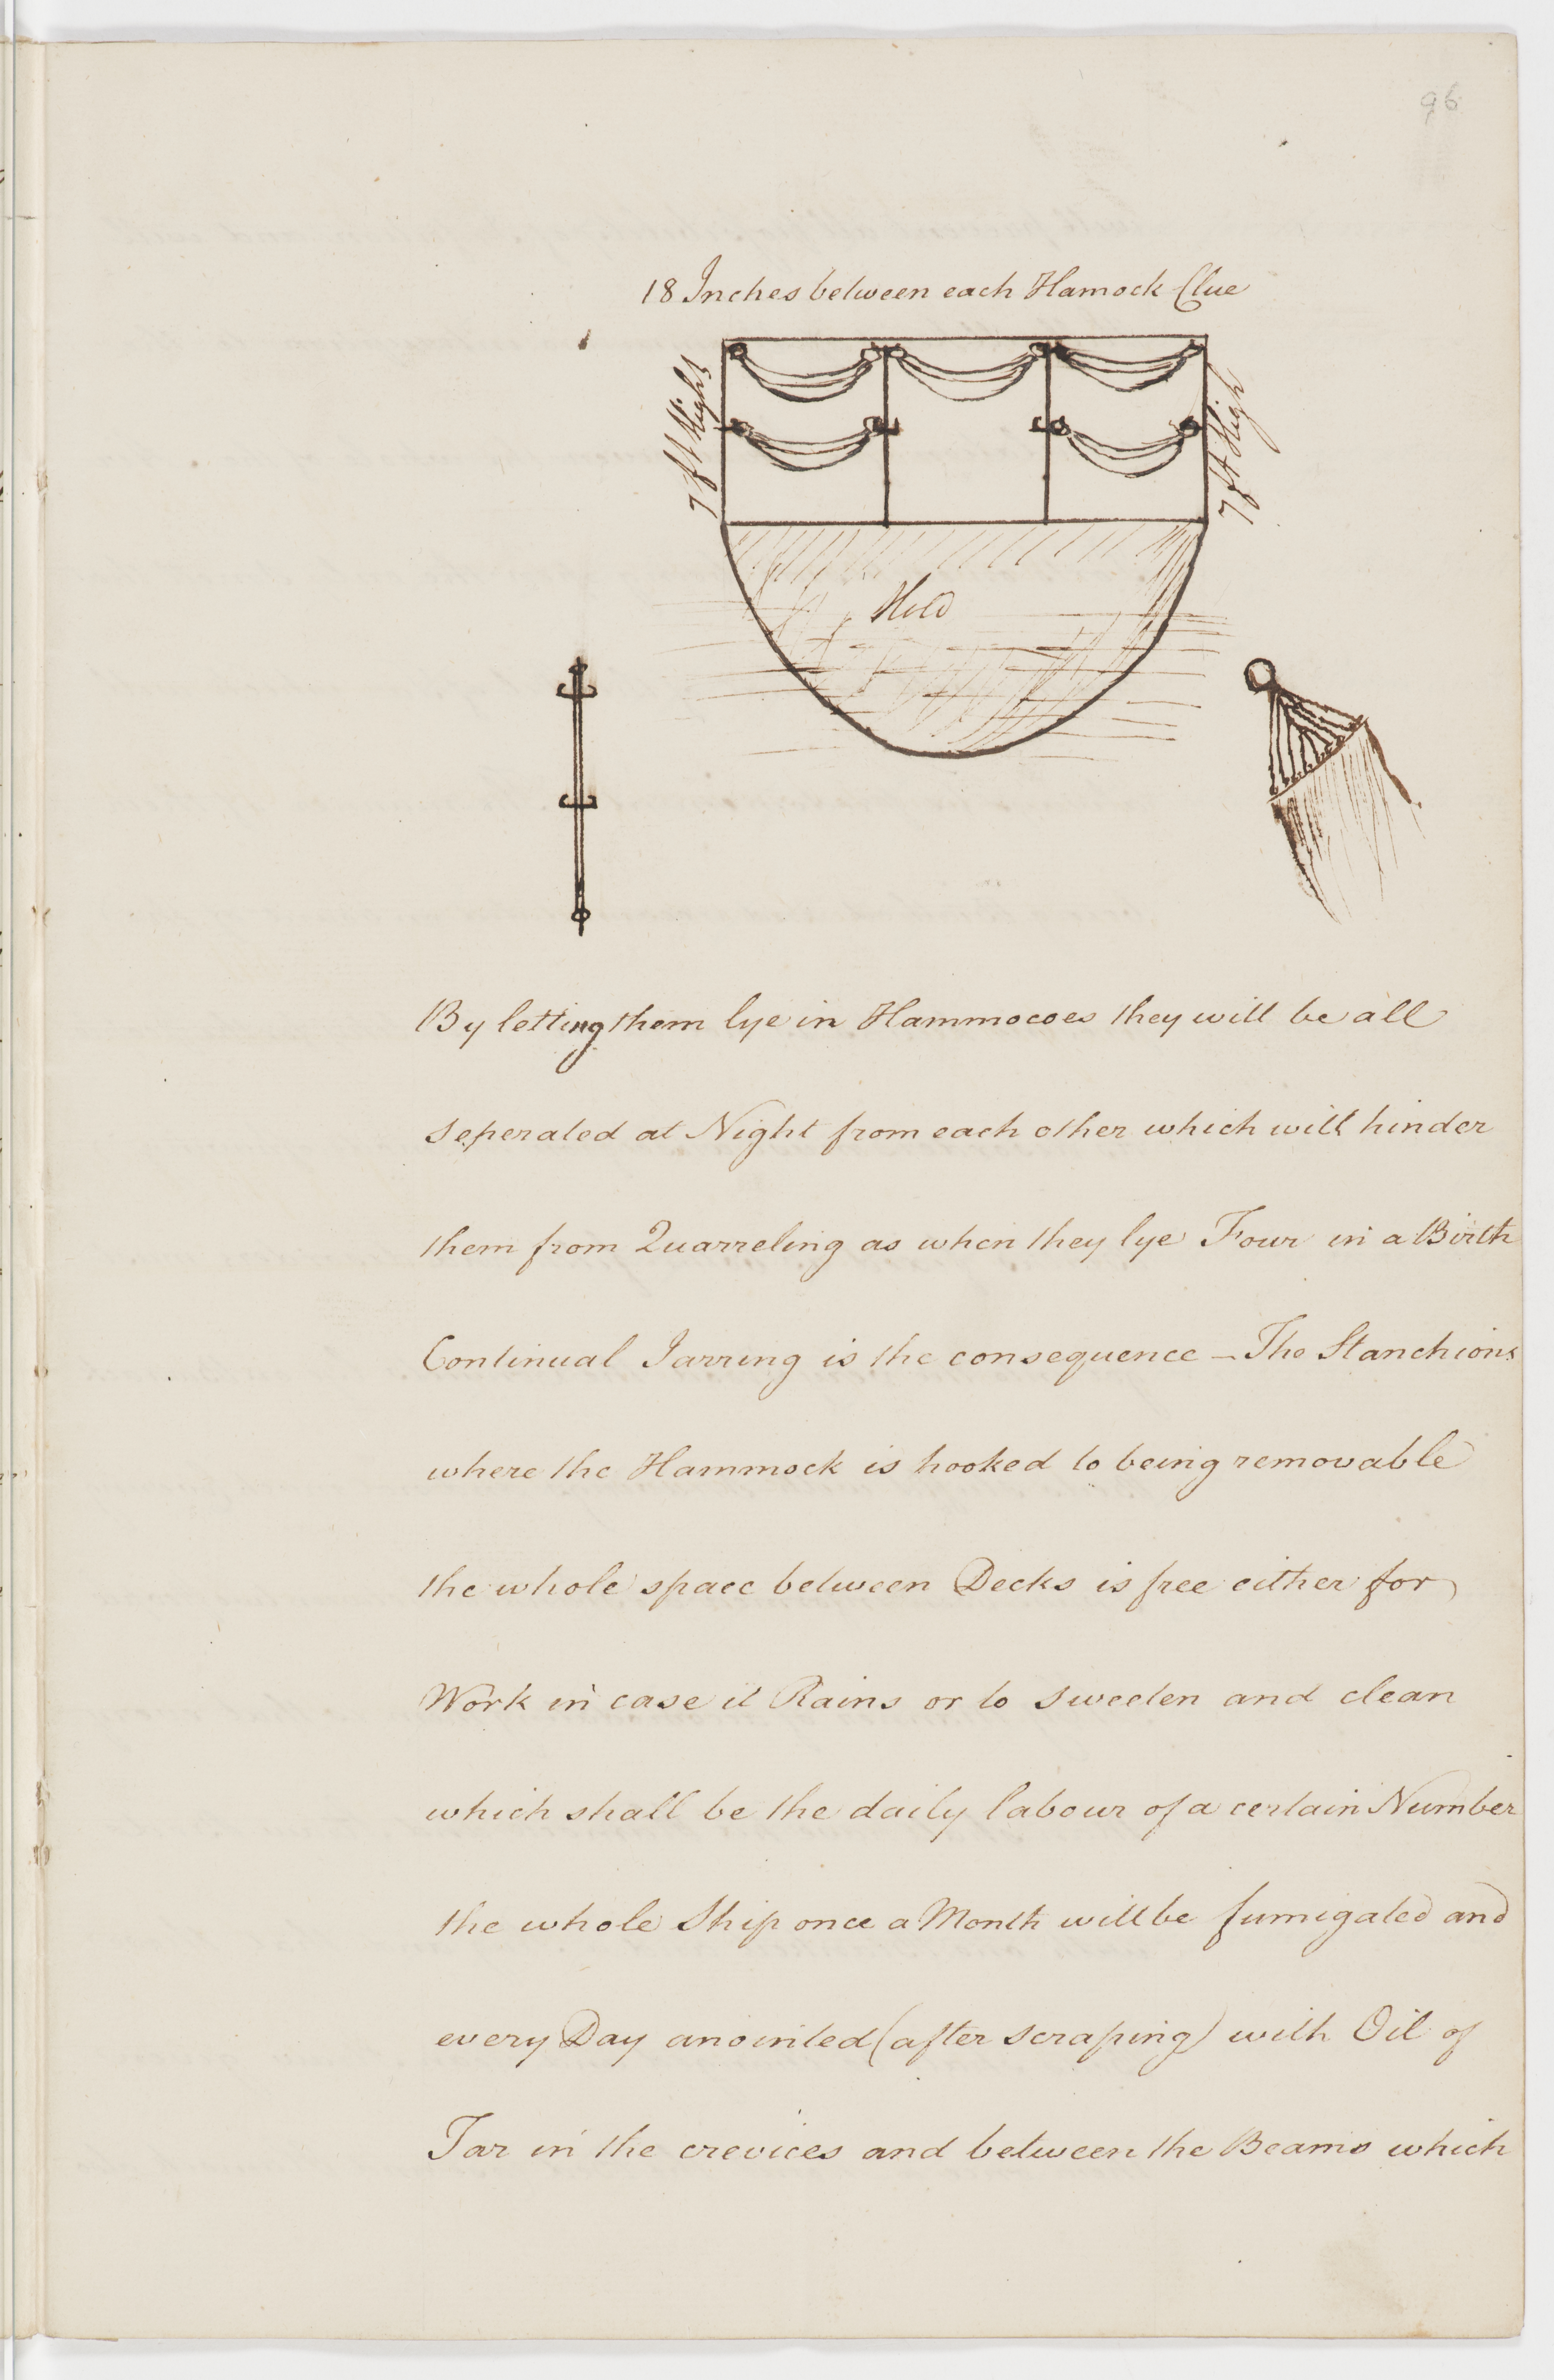 96
18 Inches between each Hamock Clue
7 ft Hight
7 ft High
Hold
By letting them lye in Hammocoes they will be all
seperated at Night from each other which will hinder
them from Quarreling as when they lye Four in a Birth
Continual Jarring is the consequence – The Stanchions
where the Hammock is hooked to being removable
the whole space between Decks is free either for
Work in case it Rains or to sweeten and clean
which shall be the daily labour of a certain Number
the whole Ship once a Month will be fumigated and
every Day anointed (after scraping) with Oil of
Tar in the crevices and between the Beams which